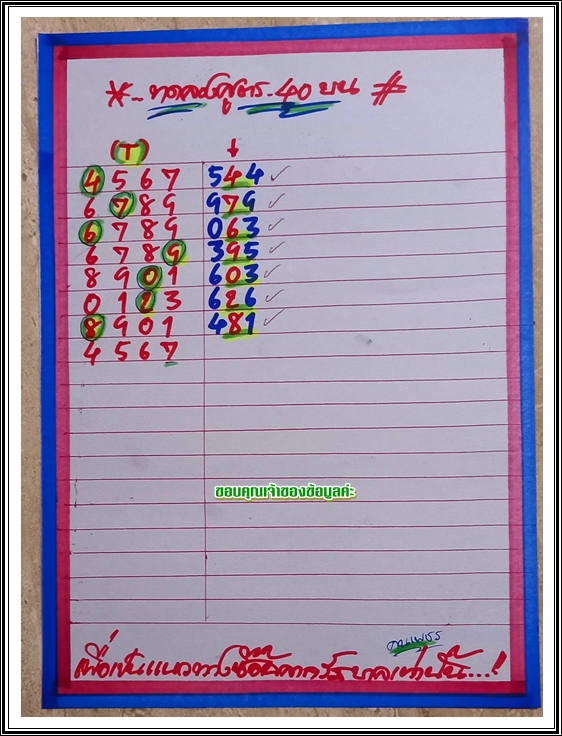 *.. ทดลองสูตร - 40 บน #
(T) ↓
4 5 6 7 544 ✓
6 7 8 9 979 ✓
6 7 8 9 063 ✓
6 7 8 9 395 ✓
8 9 0 1 603 ✓
0 1 2 3 626 ✓
8 9 0 1 481 ✓
4 5 6 7
ขอบคุณเจ้าของข้อมูลค่ะ
เพื่อเป็นแนวทางซื้อสลากรัฐบาลเท่านั้น...!